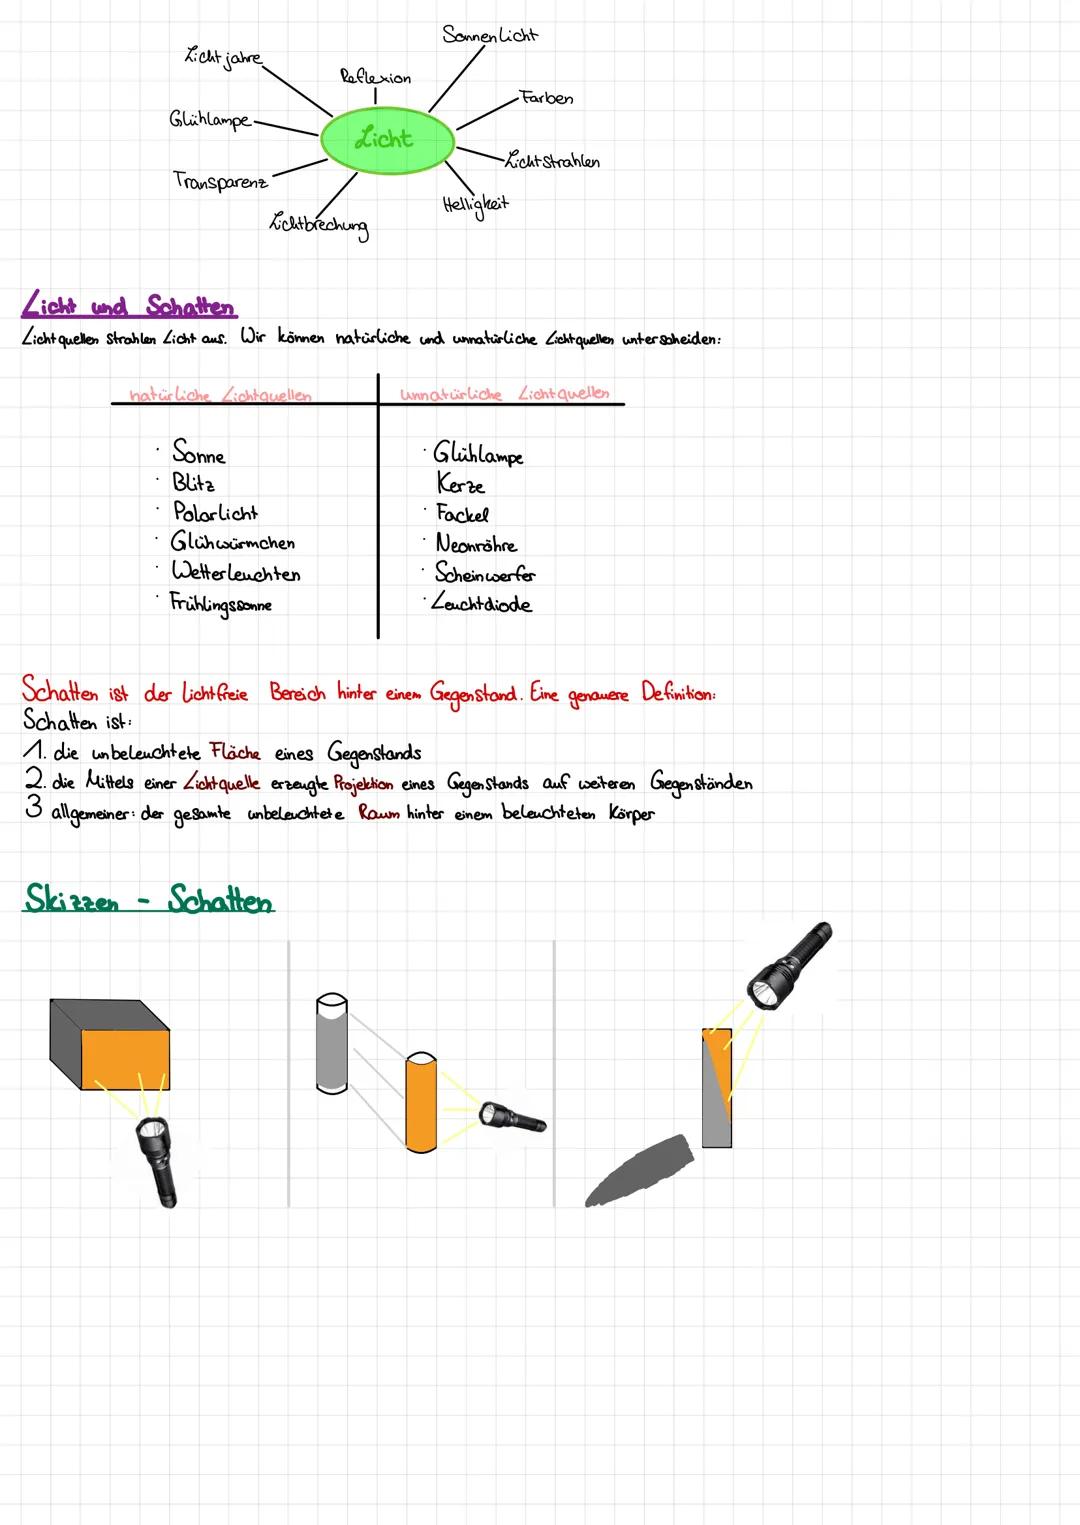 Sonnenlicht
Lichtjahre
Reflexion
Farben
Glühlampe
Licht
Lichtstrahlen
Transparenz
Helligkeit
Lichtbrechung
Licht und Schatten
Lichtquellen strahlen Licht aus. Wir können natürliche und unnatürliche Lichtquellen unterscheiden:
natürliche Lichtquellen
unnatürliche Lichtquellen
· Sonne
· Blitz
· Polarlicht
· Glühwürmchen
· Wetterleuchten
· Frühlingssonne
· Glühlampe
Kerze
· Fackel
· Neonröhre
· Scheinwerfer
· Leuchtdiode
Schatten ist der lichtfreie Bereich hinter einem Gegenstand. Eine genauere Definition:
Schatten ist:
1. die unbeleuchtete Fläche eines Gegenstands
2. die Mittels einer Lichtquelle erzeugte Projektion eines Gegenstands auf weiteren Gegenständen
3 allgemeiner: der gesamte unbeleuchtete Raum hinter einem beleuchteten Körper
Skizzen - Schatten